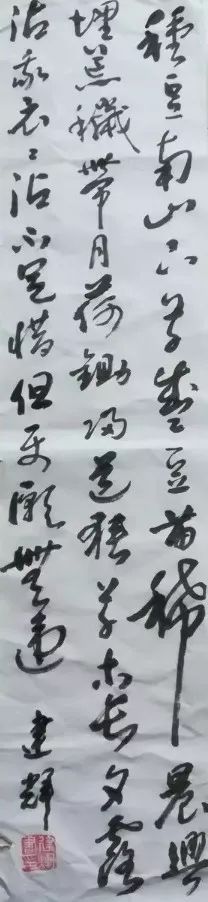 種豆南山下草盛豆苗稀晨興
理荒穢帶月荷鋤歸道狹草木長夕露
沾我衣〻沾不足惜但使願無違
建輝